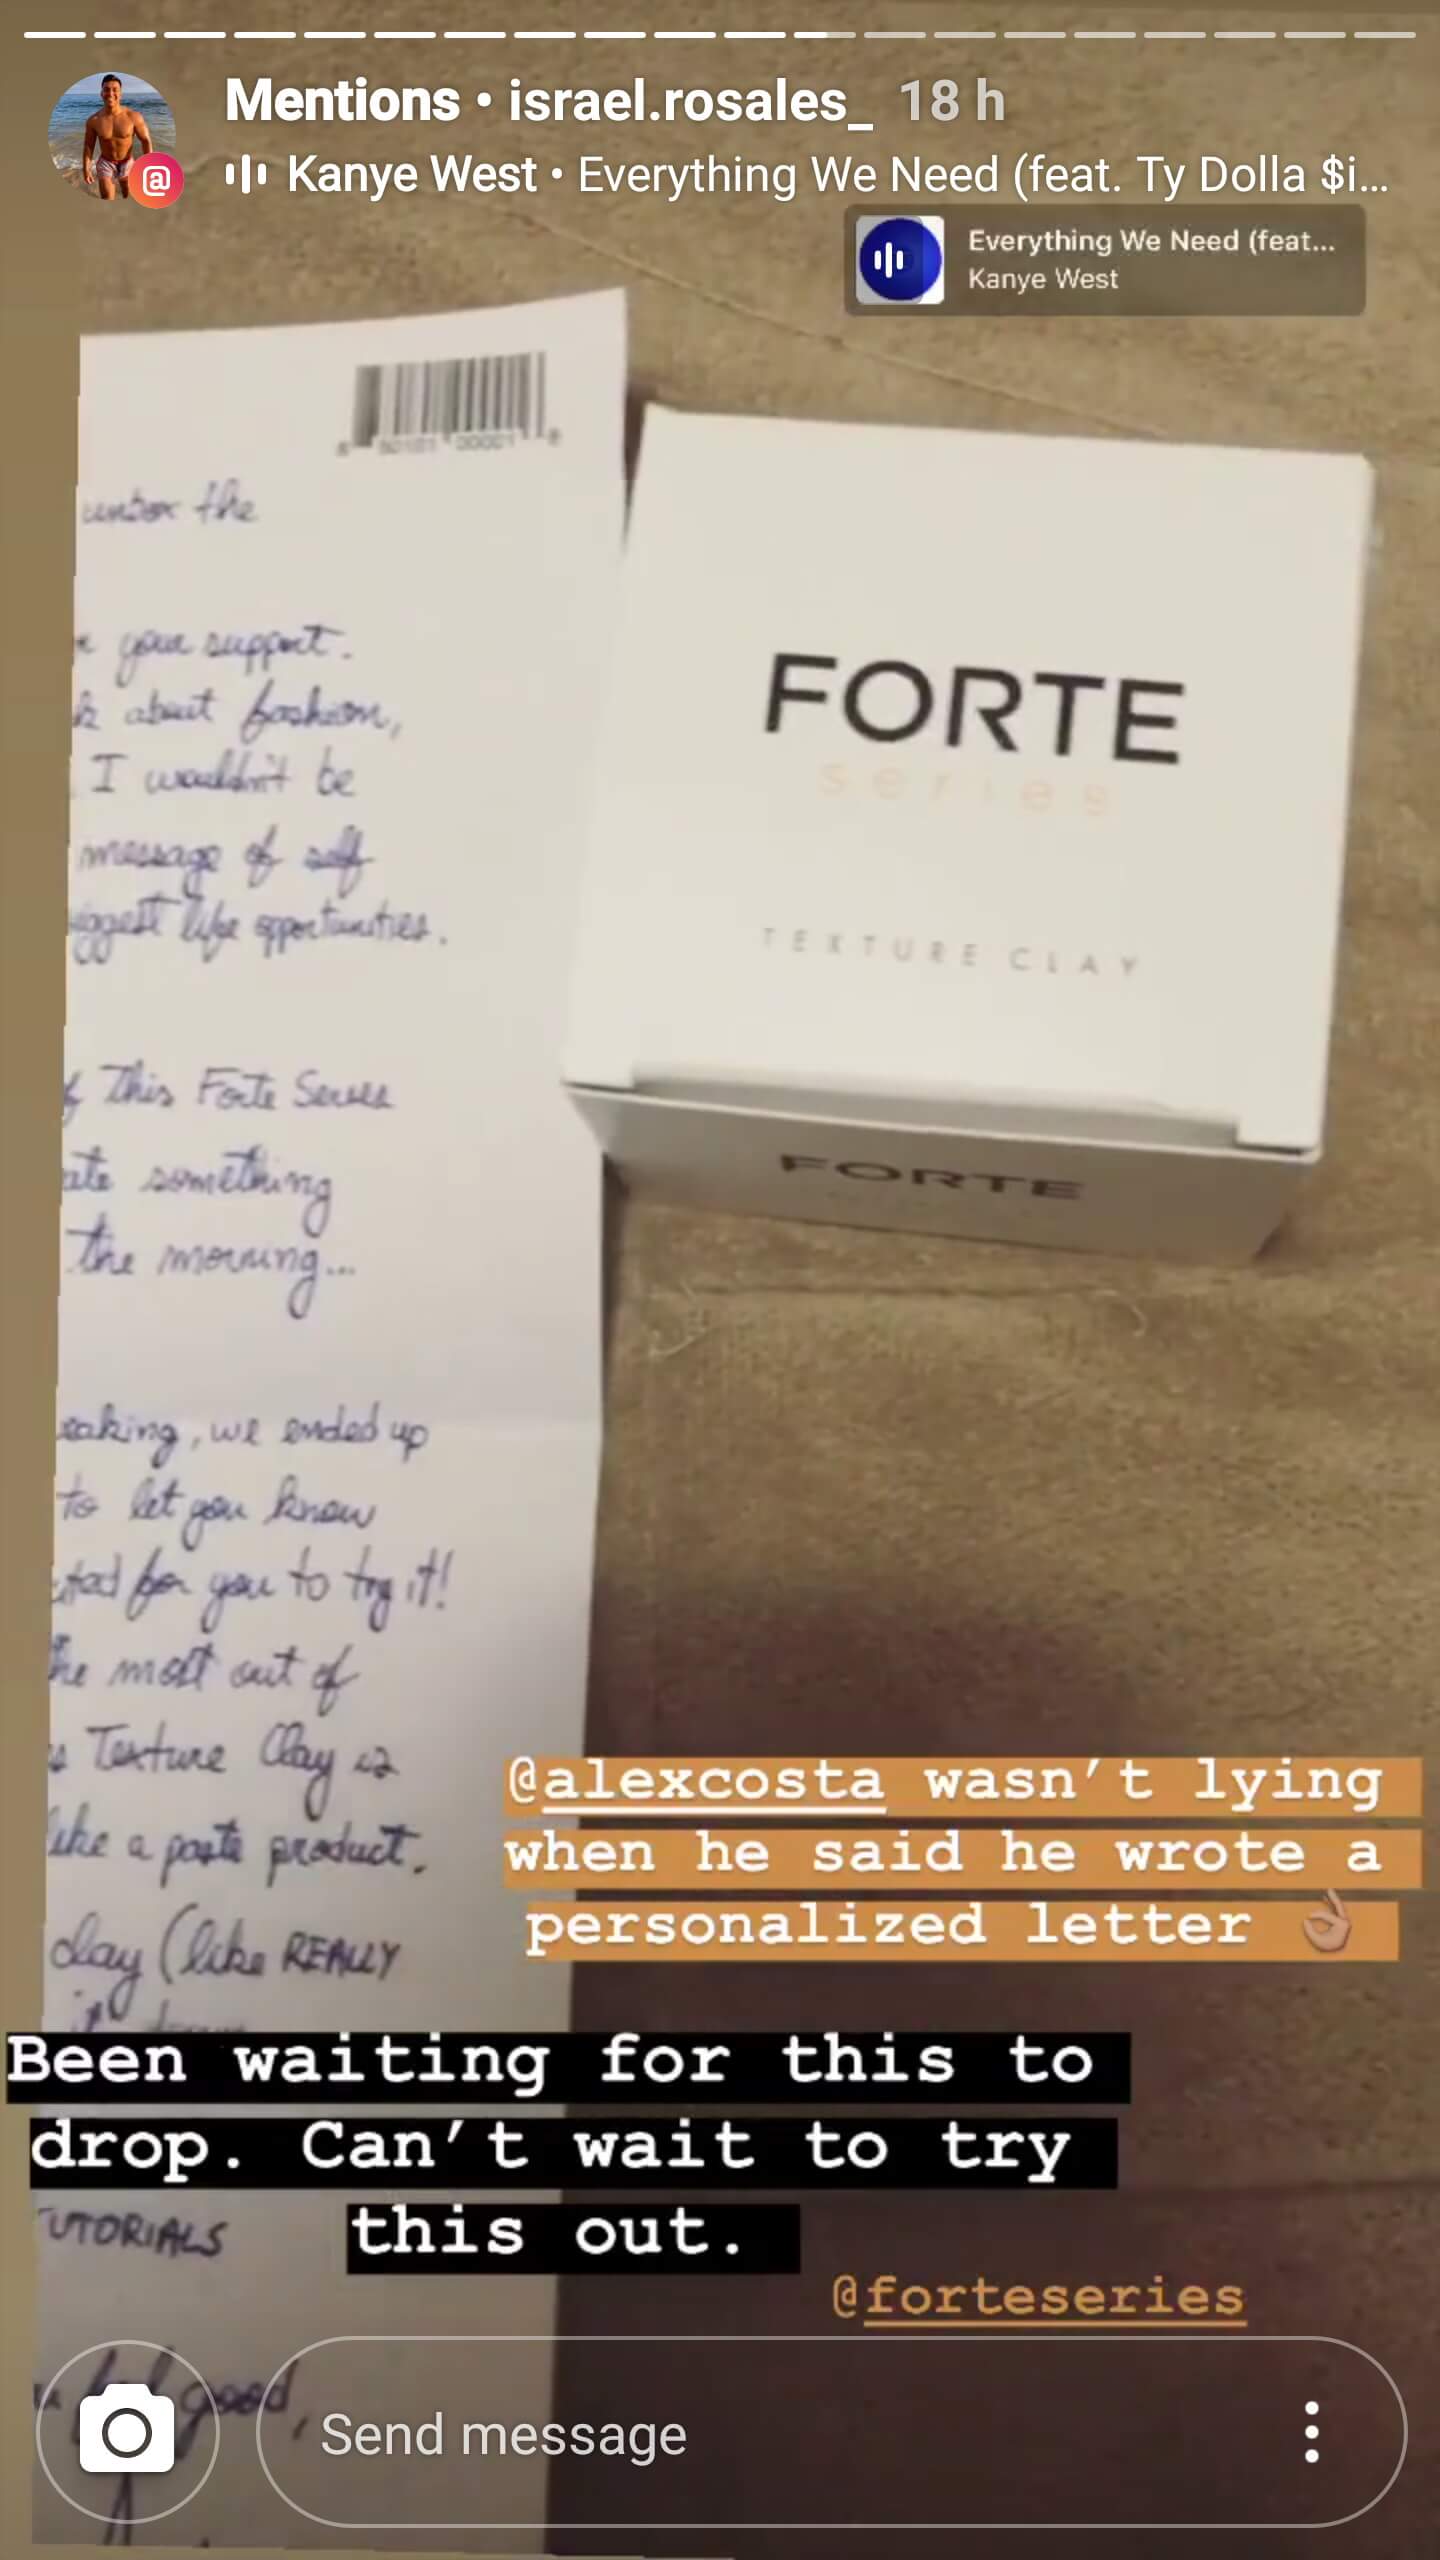 Mentions • israel.rosales_ 18 h
Kanye West • Everything We Need (feat. Ty Dolla $i...
Everything We Need (feat...
Kanye West
unbox the
your support.
about fashion,
I wouldn't be
message of self
life opportunities.
This Forte Series
something
the morning...
, we ended up
to let you know
for you to try it!
most out of
Texture Clay is
like a paste product.
clay (like REALLY
it
FORTE
series
TEXTURE CLAY
FORTE
@alexcosta wasn't lying
when he said he wrote a
personalized letter 👌🏽
Been waiting for this to
drop. Can't wait to try
this out.
@forteseries
TUTORIALS
good,
Send message